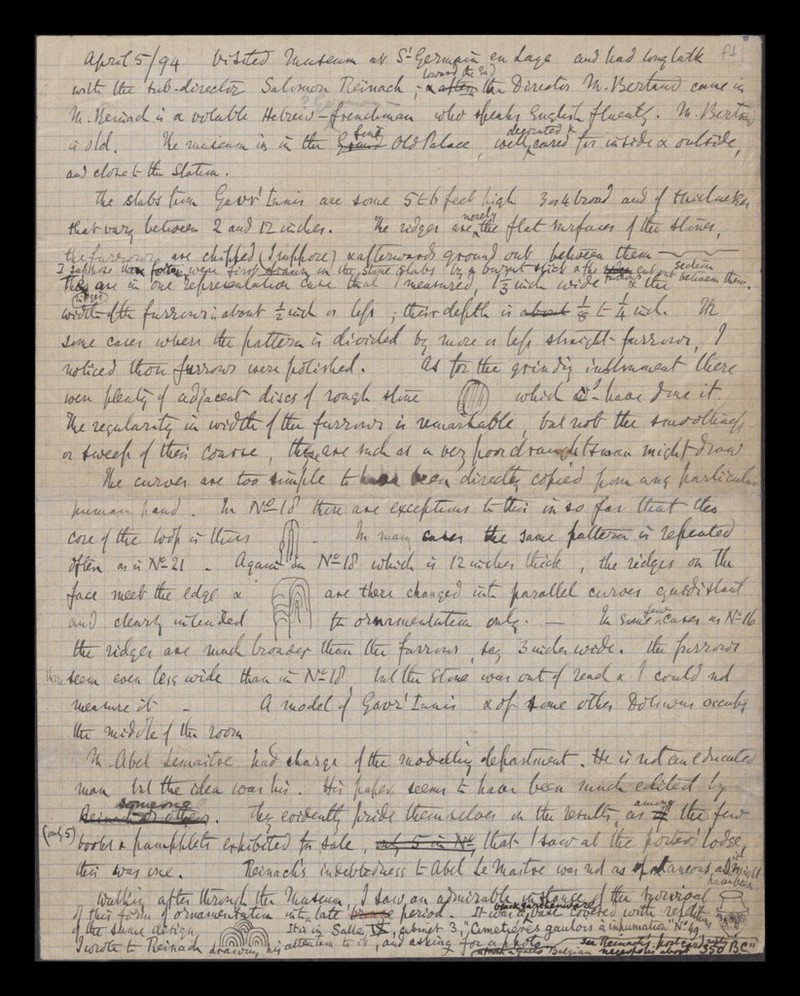 April 5/94 Visited Museum at St Germain en Laye and had long talk P1
with the sub-director Salomon Reinach; toward the end the Director M. Bertrand came in
M. Reinach is a voluble Hebrew-frenchman who speaks English fluently. M. Bertrand
is old. The museum is in the Old Palace, well decorated & cared for inside & outside,
and close to the station.
The slabs from Gavr' Innis are some 5 to 6 feet high 3 or 4 broad and of thicknesses
that vary between 2 and 12 inches. The ridges are merely the flat surfaces of the stones,
the furrows are chipped (I suppose) & afterwards ground out between them
I suppose were first drawn on the stone slabs by a burnt stick & the cut out between them. section
They are in one representative case that I measured, 1/3 inch wide & the
width of the furrows is about 1/2 inch or less; their depth is about 1/8 to 1/4 inch. In
some cases where the pattern is divided by more or less straight furrows, I
noticed those furrows were polished. As for the grinding instrument there
were plenty of adjacent discs of rough stone which could have done it
The regularity in width of the furrows is remarkable, but not the smoothness
or sweep of their course, they are such as a very poor draughtsman might draw
The curves are too simple to have been directly copied from any particular
human hand. In No 18 there are exceptions to this in so far that the
core of the loop is thus - In many cases the same pattern is repeated
often as in No 21 - Again in No 18 which is 12 inches thick, the ridges on the
face meet the edge & are there changed into parallel curves equidistant
and clearly intended for ornamentation only. — In some few cases as No 16
the ridges are much broader than the furrows, say 3 inches wide. the furrows
there seem even less wide than in No 18 but the stone was out of reach & I could not
measure it - A model of Gavr' Innis & of some other Dolmens occupy
the middle of the room
M. Abel Lemaitre had charge of the modelling department. He is not an educated
man but the idea was his. His paper seems to have been much edited by
Reinach or others someone. They evidently pride themselves on the results, as among the few
(only 5) books & pamphlets exhibited for sale, only 5 in No, that I saw at the porter's lodge,
this was one. Reinach's indebtedness to Abel Le Maitre was not as spontaneous as it might
have been.
Walking after through the Museum, I saw an admirable instance of the survival
of this form of ornamentation into late bronze period. It was a black earthenware vase covered with repetitions
of the same design, It is in Salle IX, cabinet 3, "Cimetières gaulois à inhumation" No
I wrote to Reinach drawing his attention to it, and asking for a photo — see Reinach's postcard
Gallo Belgian necropolis about 350 B.C."